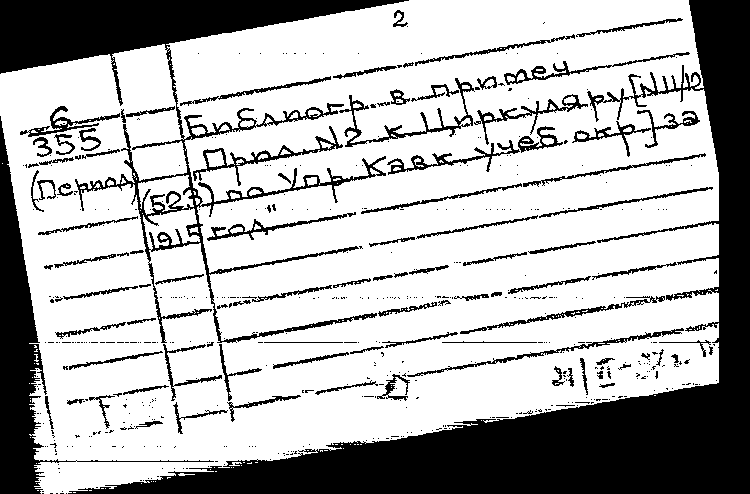 2
6
355
(Период)
Библиогр. в примеч
"Прил. N2 к Циркуляру [N11/12
(523) по Упр Кавк. учеб. окр] за
1915 год"
21/II-37 г.